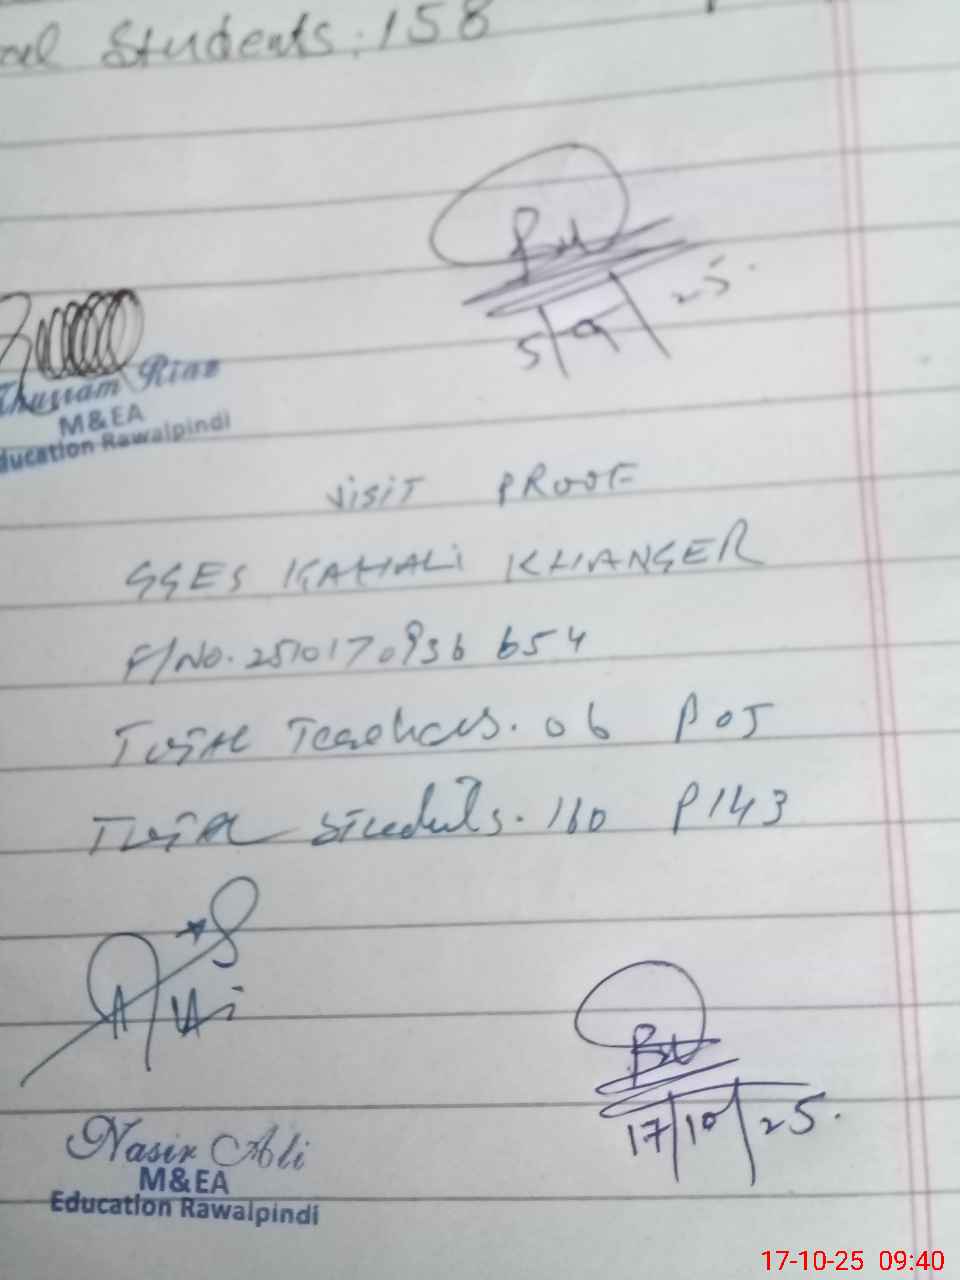 Students: 158
5/9/25.
Riaz
M&EA
ducation Rawalpindi
VISIT PROOF
GGES KAHALI KHANGER
F/NO. 2510170936 654
TOTAL Teachers. 06 P 05
TOTAL Students. 160 P 143
17/10/25.
Nasir Ali
M&EA
Education Rawalpindi
17-10-25 09:40